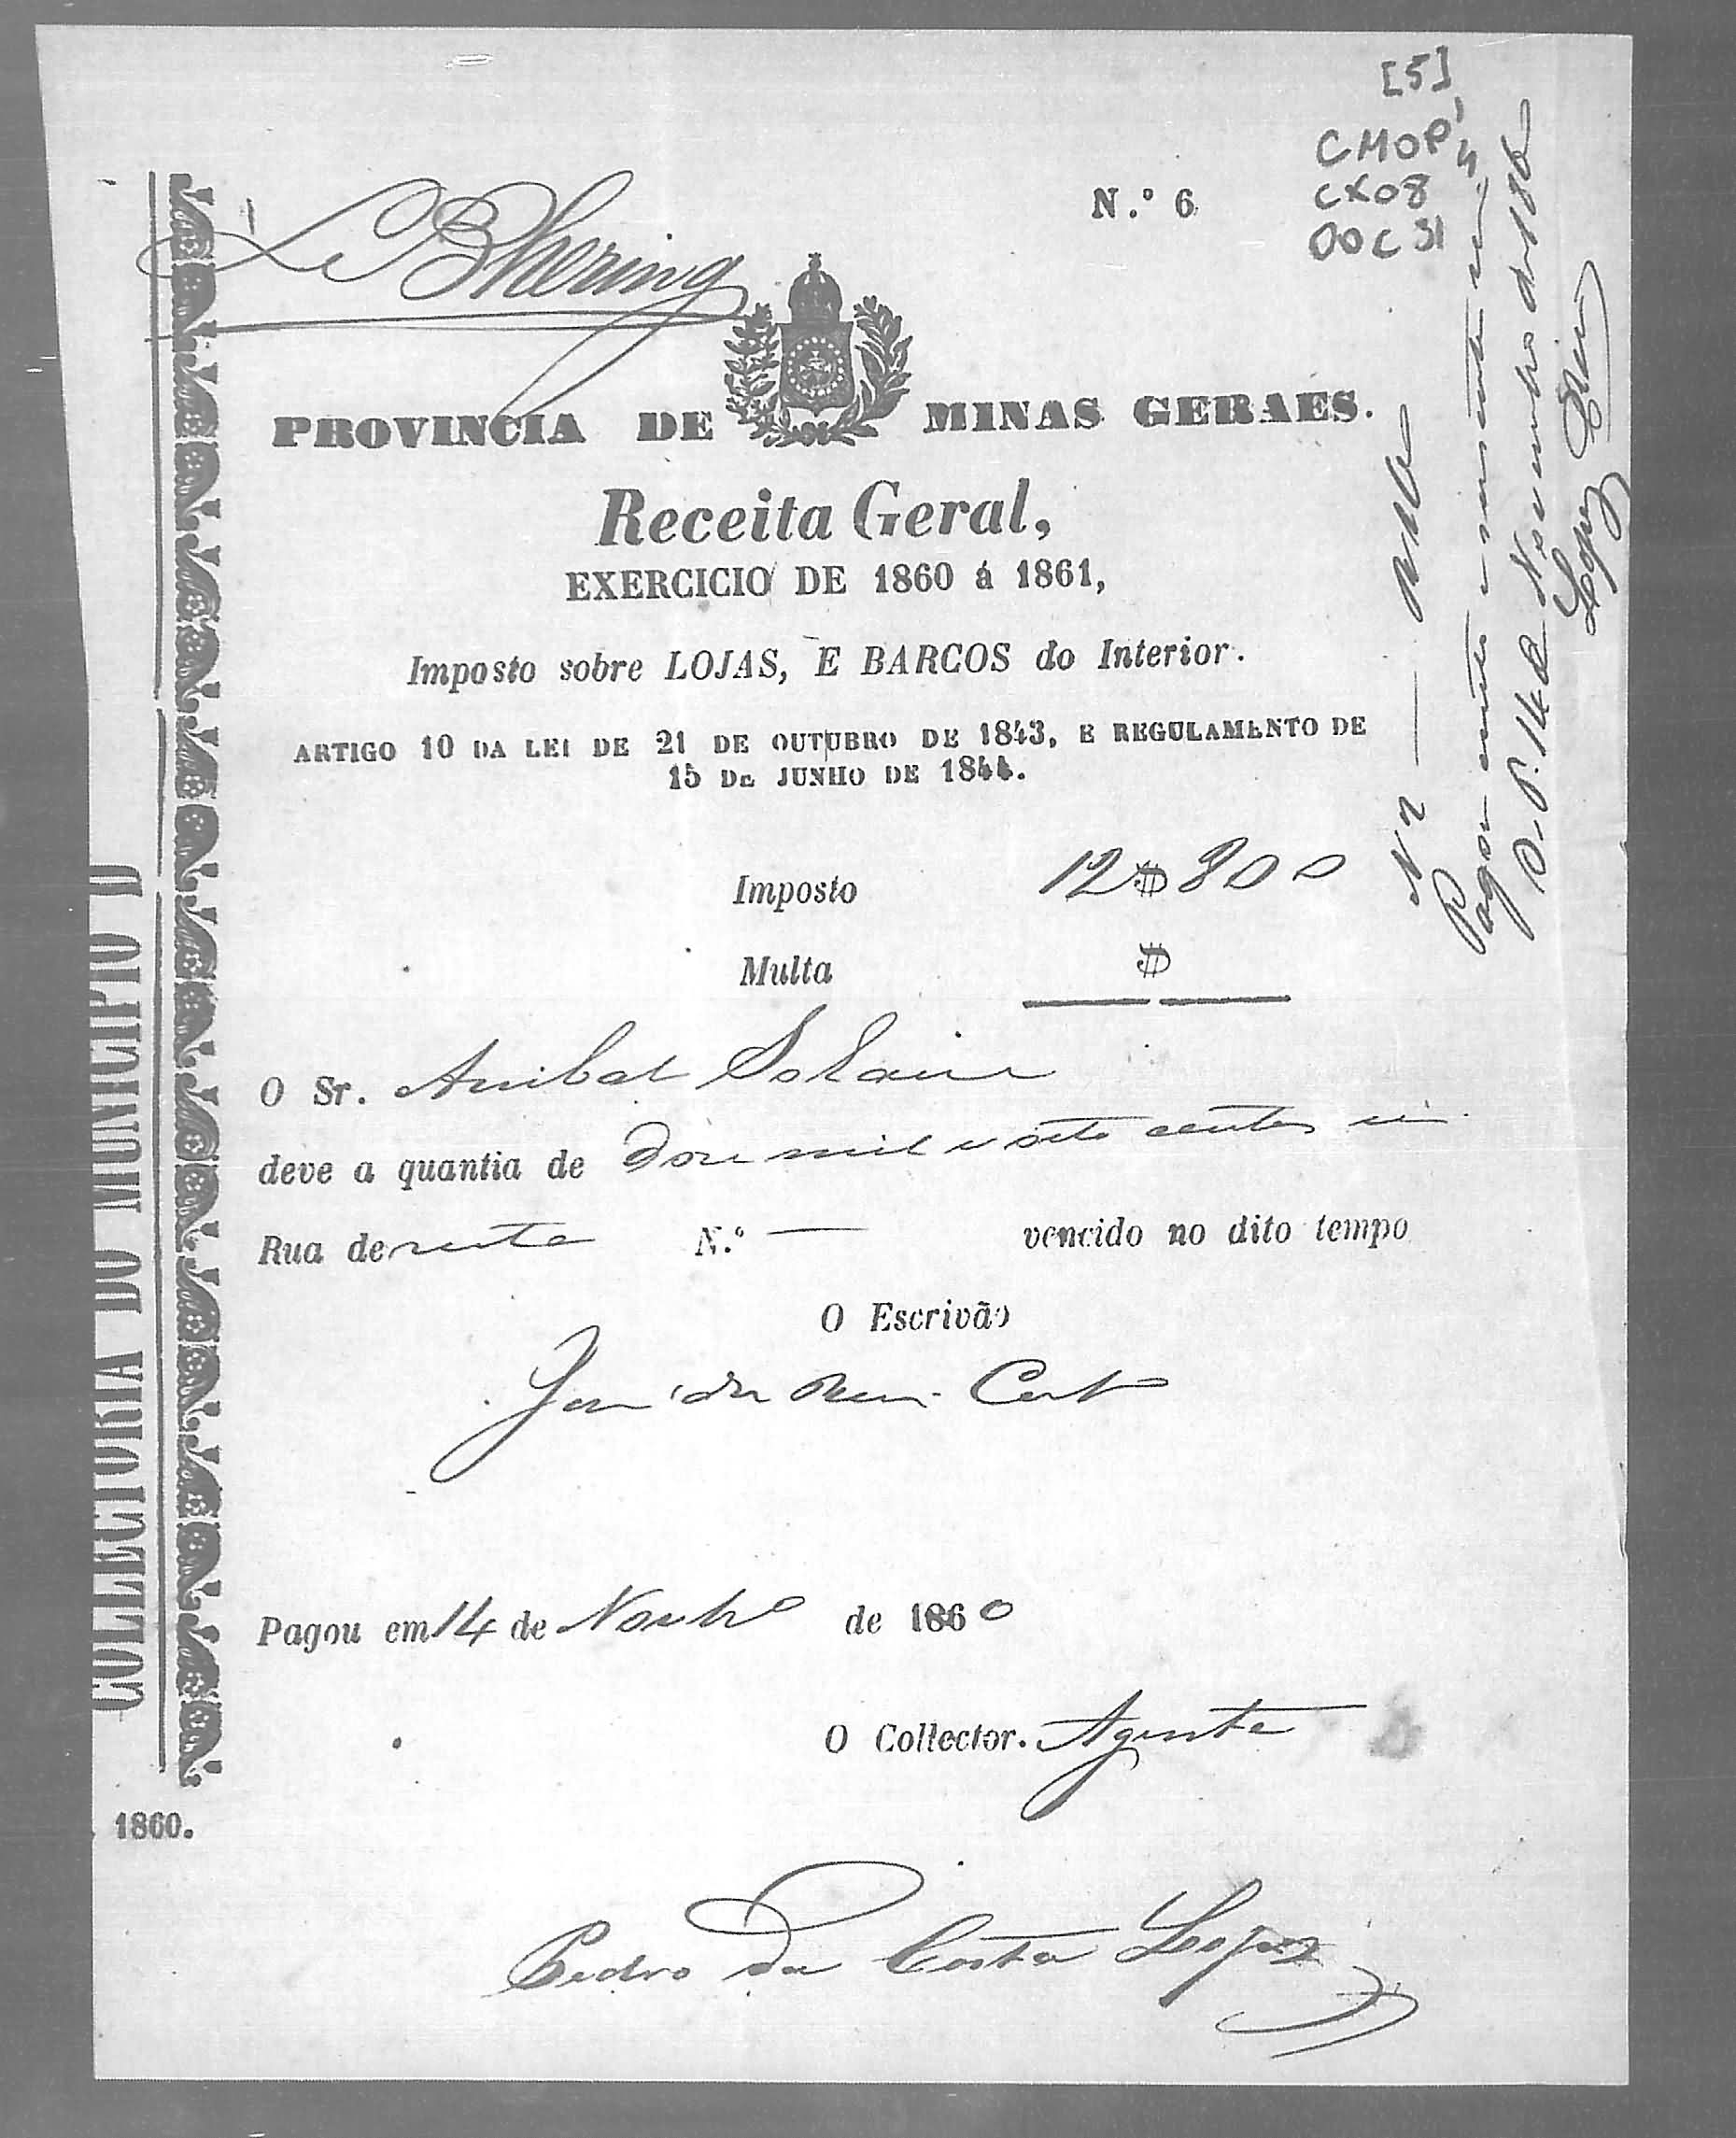 [5]
CMOP
CX08
DOC 31
N.º 6
Bhering
PROVINCIA DE MINAS GERAES.
Receita Geral,
EXERCICIO DE 1860 á 1861,
Imposto sobre LOJAS, E BARCOS do Interior.
ARTIGO 10 DA LEI DE 21 DE OUTUBRO DE 1843, E REGULAMENTO DE
15 DE JUNHO DE 1844.
Imposto 12$800
Multa $
O Sr. Anibal
deve a quantia de Doze mil e oito centos rs
Rua de N.º — vencido no dito tempo
O Escrivão
Pagou em 14 de Novbro de 1860
O Collector. Agente
Pedro da Costa Lopes
COLLECTORIA DO MUNICIPIO D
1860.
N 2
Pagou cento e sessenta rs.
O. P. 14 de Novembro de 186
Lopes